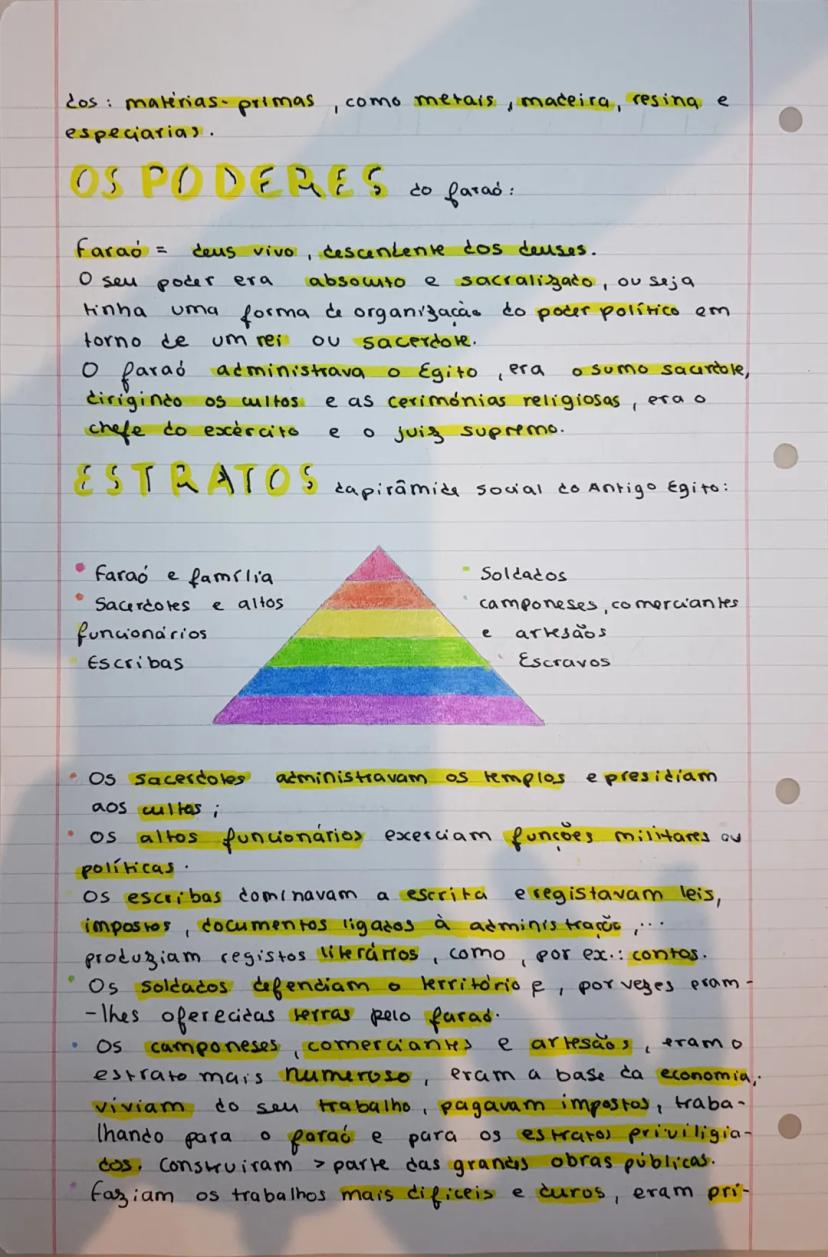 dos: matérias-primas, como metais, madeira, resina e
especiarias.
OS PODERES do faraó:
Faraó = deus vivo, descendente dos deuses.
O seu poder era absoluto e sacralizado, ou seja
tinha uma forma de organização do poder político em
torno de um rei ou sacerdote.
O faraó administrava o Egito, era o sumo sacerdote,
dirigindo os cultos e as cerimónias religiosas, era o
chefe do exército e o juiz supremo.
ESTRATOS da pirâmide social do Antigo Egito:
• Faraó e família
• Sacerdotes e altos
funcionários
• Escribas
• Soldados
• camponeses, comerciantes
e artesãos
• Escravos
• Os sacerdotes administravam os templos e presidiam
aos cultos;
• Os altos funcionários exerciam funções militares ou
políticas.
Os escribas dominavam a escrita e registavam leis,
impostos, documentos ligados à administração,...
produziam registos literários, como, por ex.: contos.
• Os soldados defendiam o território e, por vezes eram-
-lhes oferecidas terras pelo faraó.
• Os camponeses, comerciantes e artesãos, eram o
estrato mais numeroso, eram a base da economia,
viviam do seu trabalho, pagavam impostos, traba-
lhando para o faraó e para os estratos priviligia-
dos. Construiram > parte das grandes obras públicas.
• Faziam os trabalhos mais dificeis e duros, eram pri-